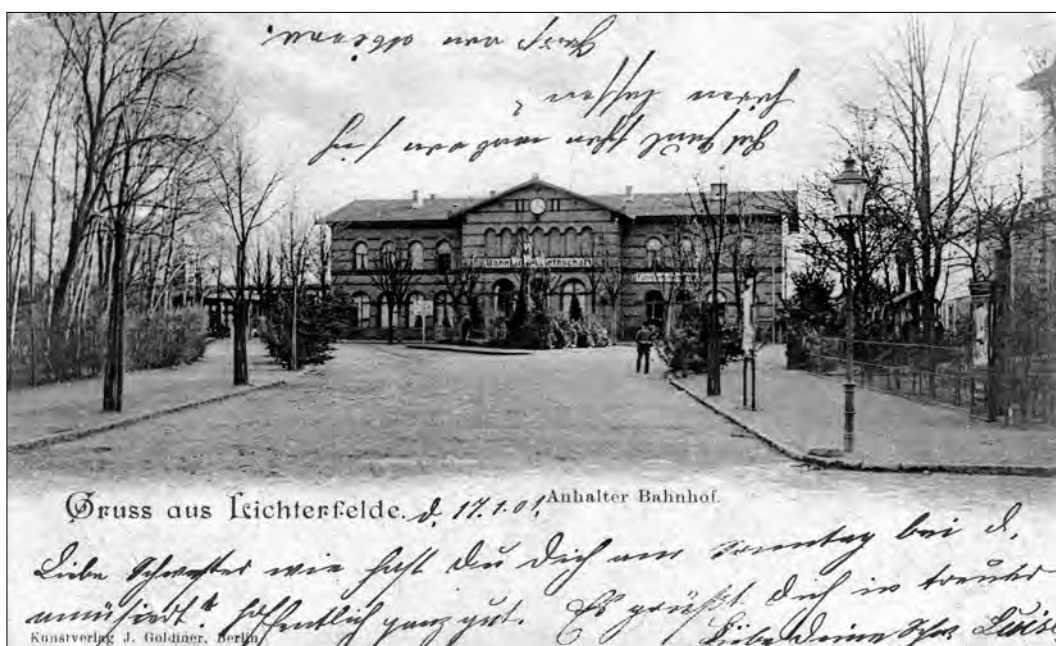 Gruss von
hören lassen?
Hat Paul schon von sich
Bahnhofs-Wirthschaft
Gruss aus Lichterfelde. d. 17.1.01.
Anhalter Bahnhof.
Liebe Schwester wie hast Du Dich am Sonntag bei d.
amüsirt? Hoffentlich ganz gut. Es grüßt Dich in treuer
Liebe Deine Schw. Luise
Kunstverlag J. Goldiner, Berlin